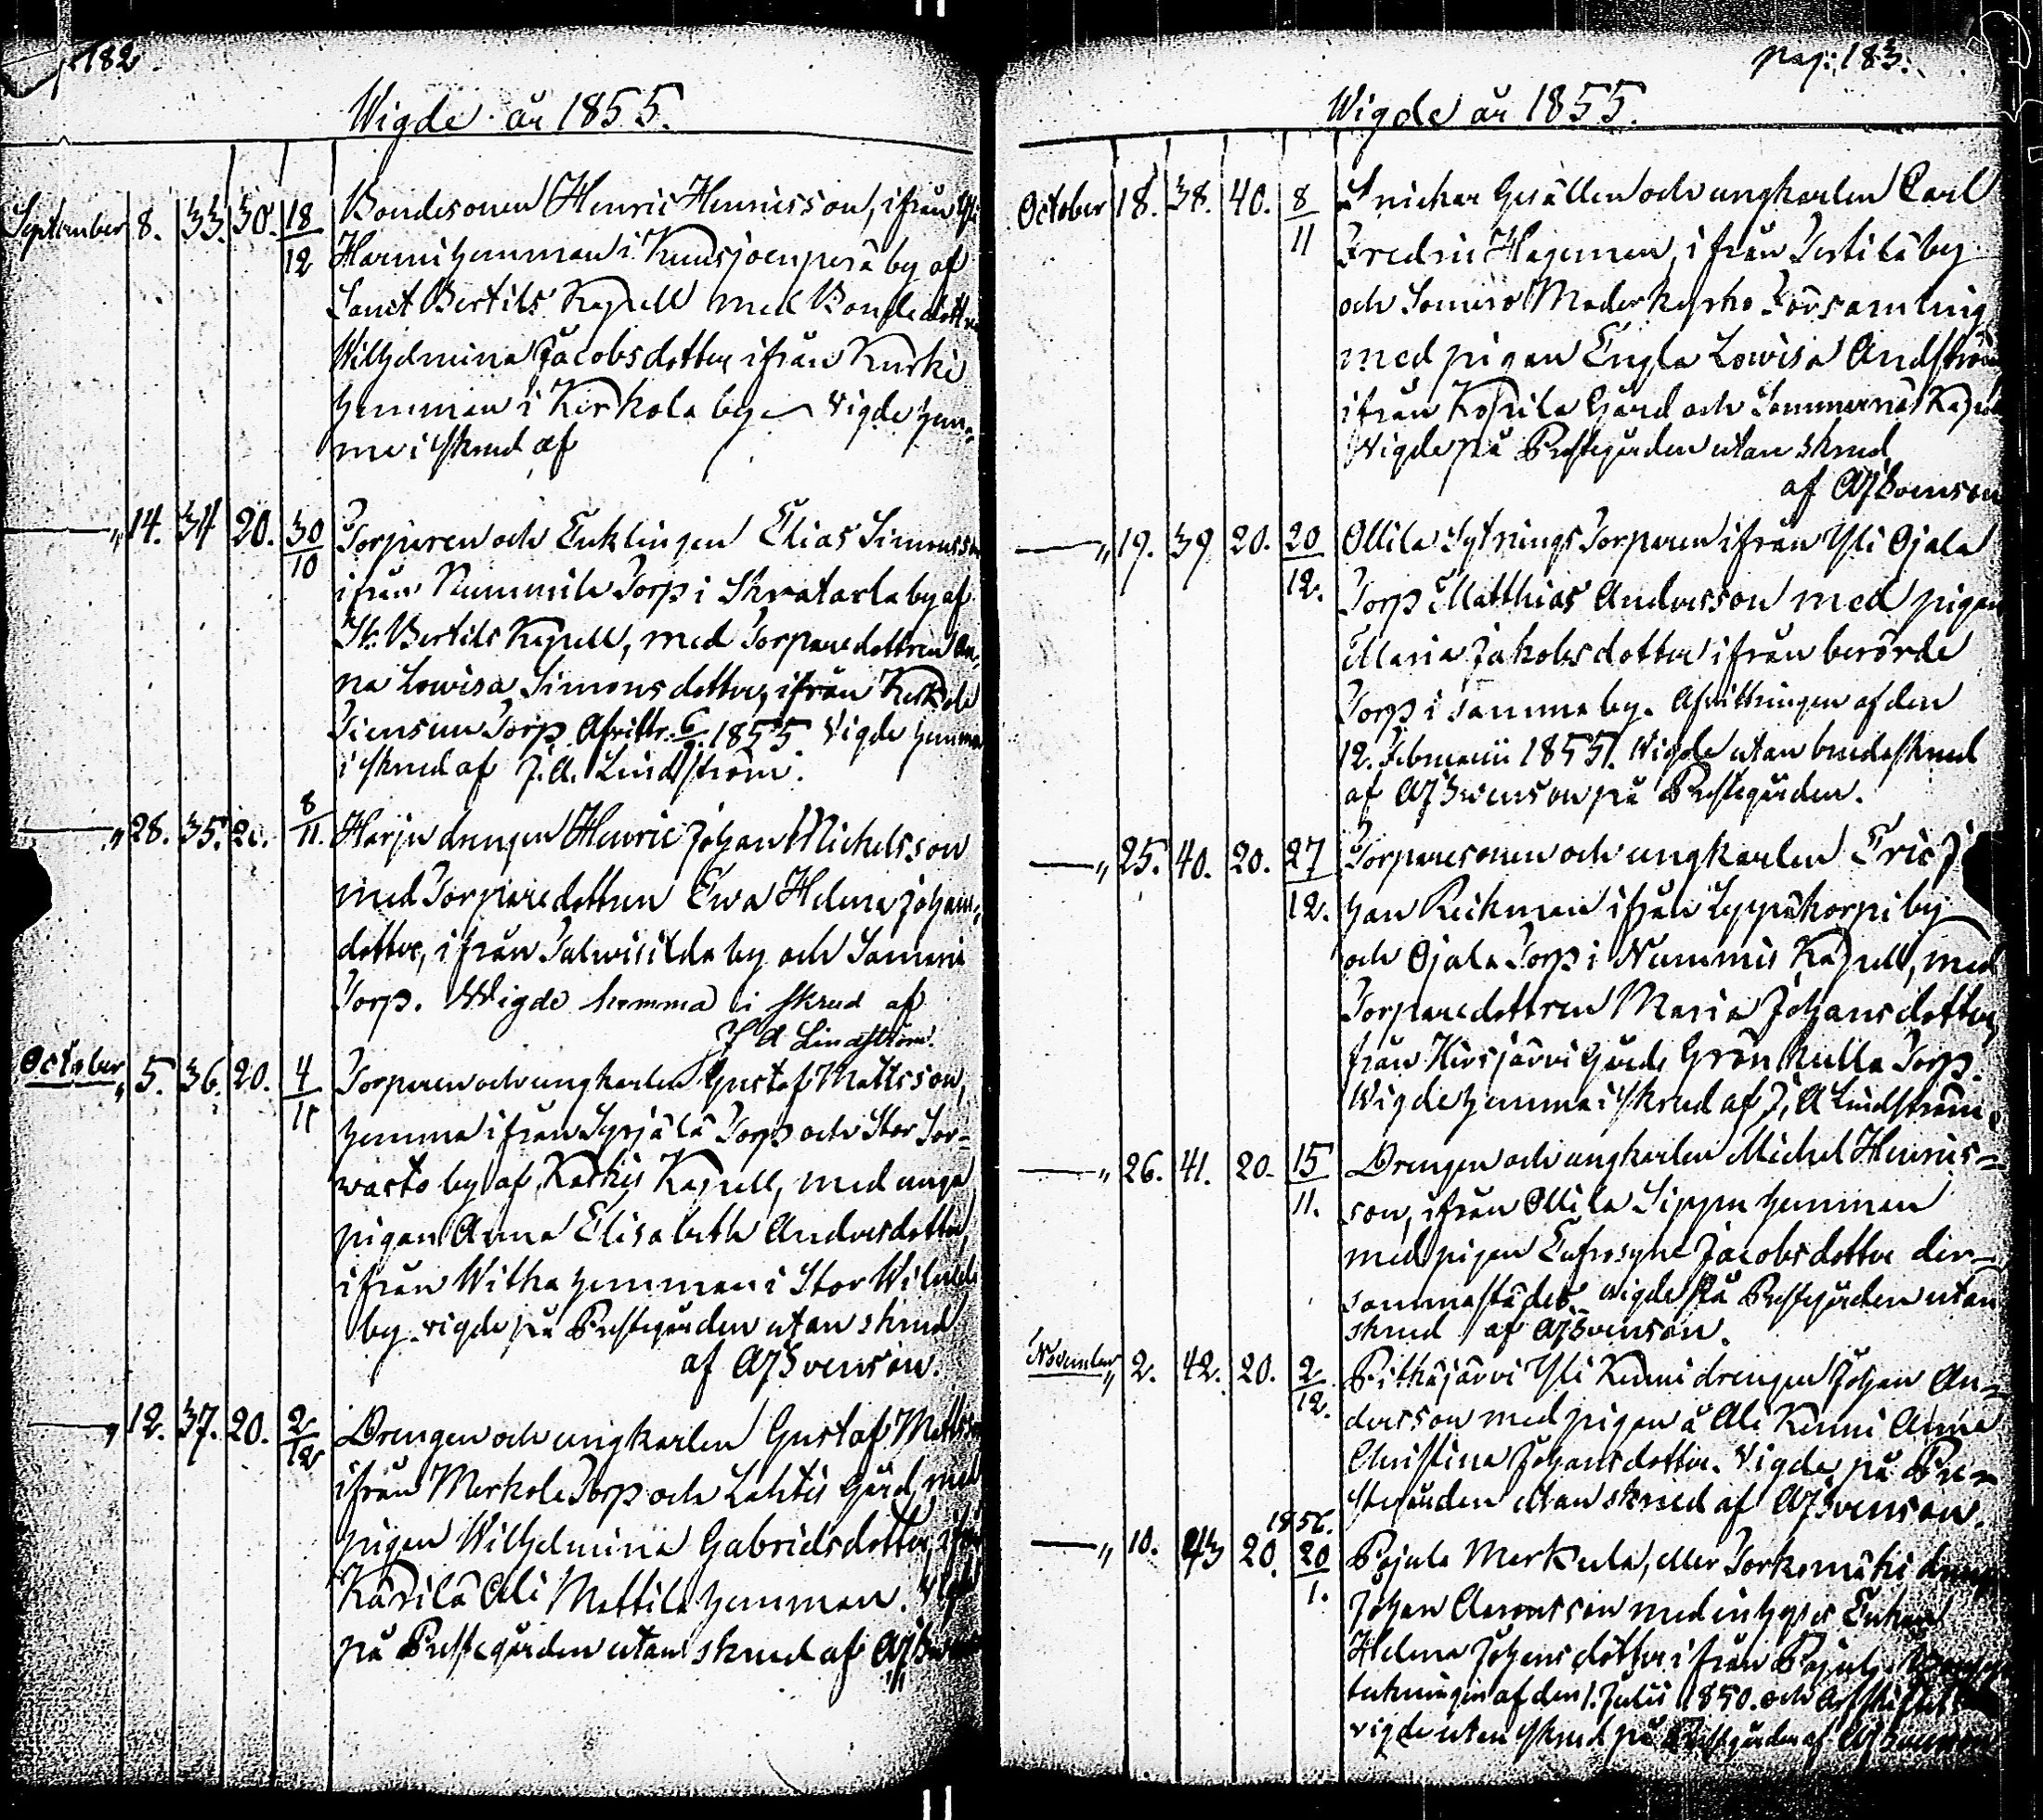 182.
Wigde år 1855.
September 8. 33. 30. 18/12 Bondesonen Henric Henricsson, ifrån Yli
Harmi hemman i Kuusjoenperä by af
Sanct Bertils Kapell med Bondedottren
Wilhelmina Jacobsdotter ifrån Kurki
hemman i Kerkola by vigde hem-
ma i skrud af
—„ 14. 34 20. 30/10 Torparen och Enklingen Elias Simonsson
ifrån Nummila Torp i Skratarla by af
St. Bertils Kapell, med Torparedottren An-
na Lowisa Simonsdotter, ifrån Kerkola
Torp. Afvittr. 1855. Vigde hemma
i skrud af J. A. Lindström.
—„ 28. 35. 20. 8/11. Harju drengen Henric Johan Michelsson
med Torparedottren Ewa Helena Johans-
dotter, ifrån by och Sameri
Torp. Wigde hemma i skrud af
J A Lindström.
October„ 5. 36. 20. 4/11 Torparen och ungkarlen Gustaf Mattsson,
hemma ifrån Syrjälä Torp och Stor Sor-
vasto by af Karkis Kapell, med unga
pigan Anna Elisabeth Andersdotter,
ifrån Witka hemman i Stor
by. vigde på Prestegården utan skrud
af AJ Svenson.
—„ 12. 37. 20. 2/12 Drengen och ungkarlen Gustaf Mattsson
ifrån Merkola Torp och Lahtis Gård, med
pigan Wilhelmina Gabrielsdotter, ifrån
Kärilä Ali Mattila hemman. Vigde
på Prestegården utan skrud af AJ Svenson
pag: 183.
Wigde år 1855.
October 18. 38. 40. 8/11 Snickar Gesällen och ungkarlen Carl
Fredric Hageman, ifrån Terttilä by
och Somero Moderkyrko Församling
med pigan Engla Lowisa Andström
ifrån Koskila Gård och Sommarnäs Kapell
Vigde på Prestegården utan skrud
af AJ Svenson
—„ 19. 39 20. 20/12. Ollila Sytnings Torparen ifrån Yli Ojala
Torp Matthias Andersson med pigan
Maria Jakobsdotter ifrån berörde
Torp i samma by. Afvittringen af den
12. Februarii 1855. Wigde utan brudeskrud
af AJ Svenson på Prestegården.
—„ 25. 40. 20. 27/12. Torparesonen och ungkarlen Eric Jo
han Reckman ifrån Leppäkorpi by
och Ojala Torp i Nummis Kapell, med
Torparedottren Maria Johansdotter,
från Hirsjärvi Gårds Grönkulla Torp.
Wigde hemma i skrud af J. A Lindström.
—„ 26. 41. 20. 15/11. Drengen och ungkarlen Michel Henrics-
son, ifrån Ollila Sippu hemman
med pigan Eufrosyne Jacobsdotter der-
sammastädes vigde på Prestegården utan
skrud af AJ Svenson.
November„ 2. 42. 20. 2/12. Pitkäjärvi Yli Kenni drengen Johan An-
dersson med pigan å Ali Kenni Anna
Christina Johansdotter. Vigde på Pre-
stegården utan skrud af AJ Svenson.
—„ 10. 43 20. 1856. 20/1. Pajula Merkula, eller Torkomäki drengen
Johan Aronsson med inhyses Enkan
Helena Johansdotter ifrån Pajula.
teckningen af den 1. Julii 1850. och Arfskiftet
vigde utan skrud på Prestgården af AJ Svenson